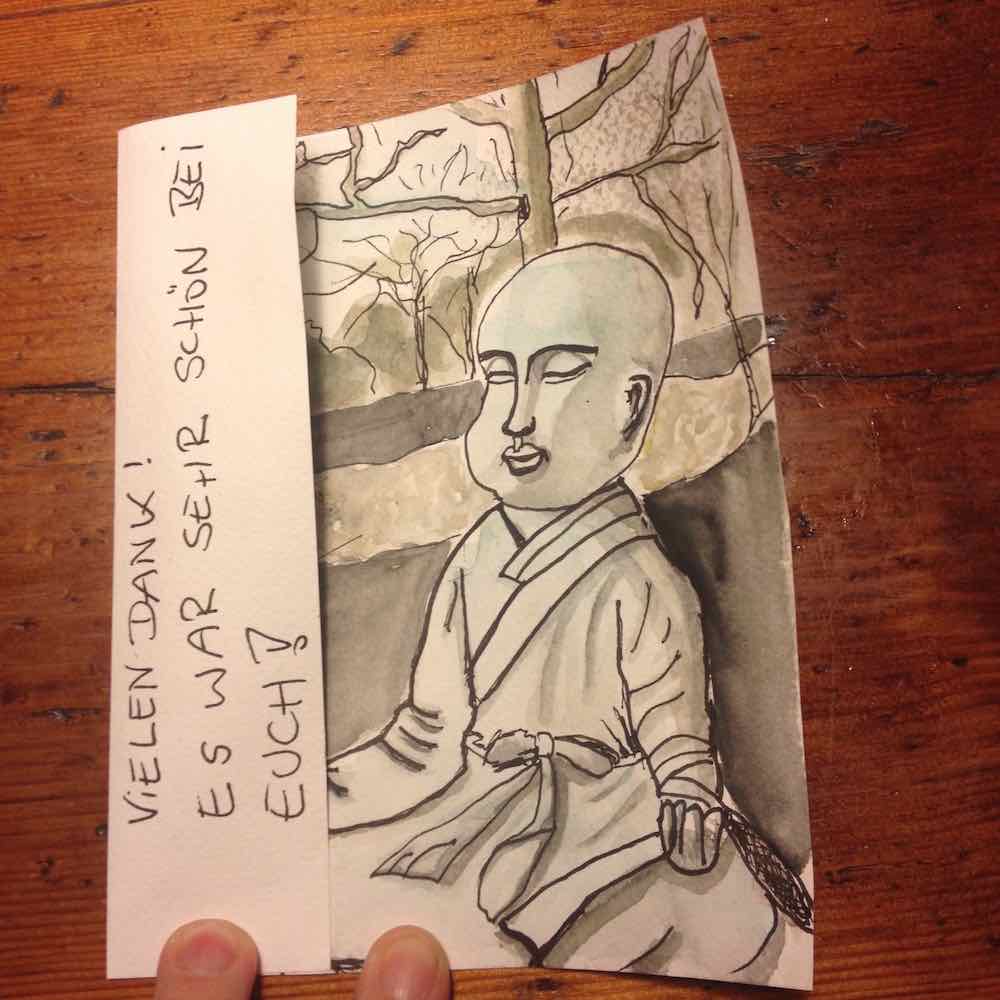 VIELEN DANK!
ES WAR SEHR SCHÖN BEI
EUCH!